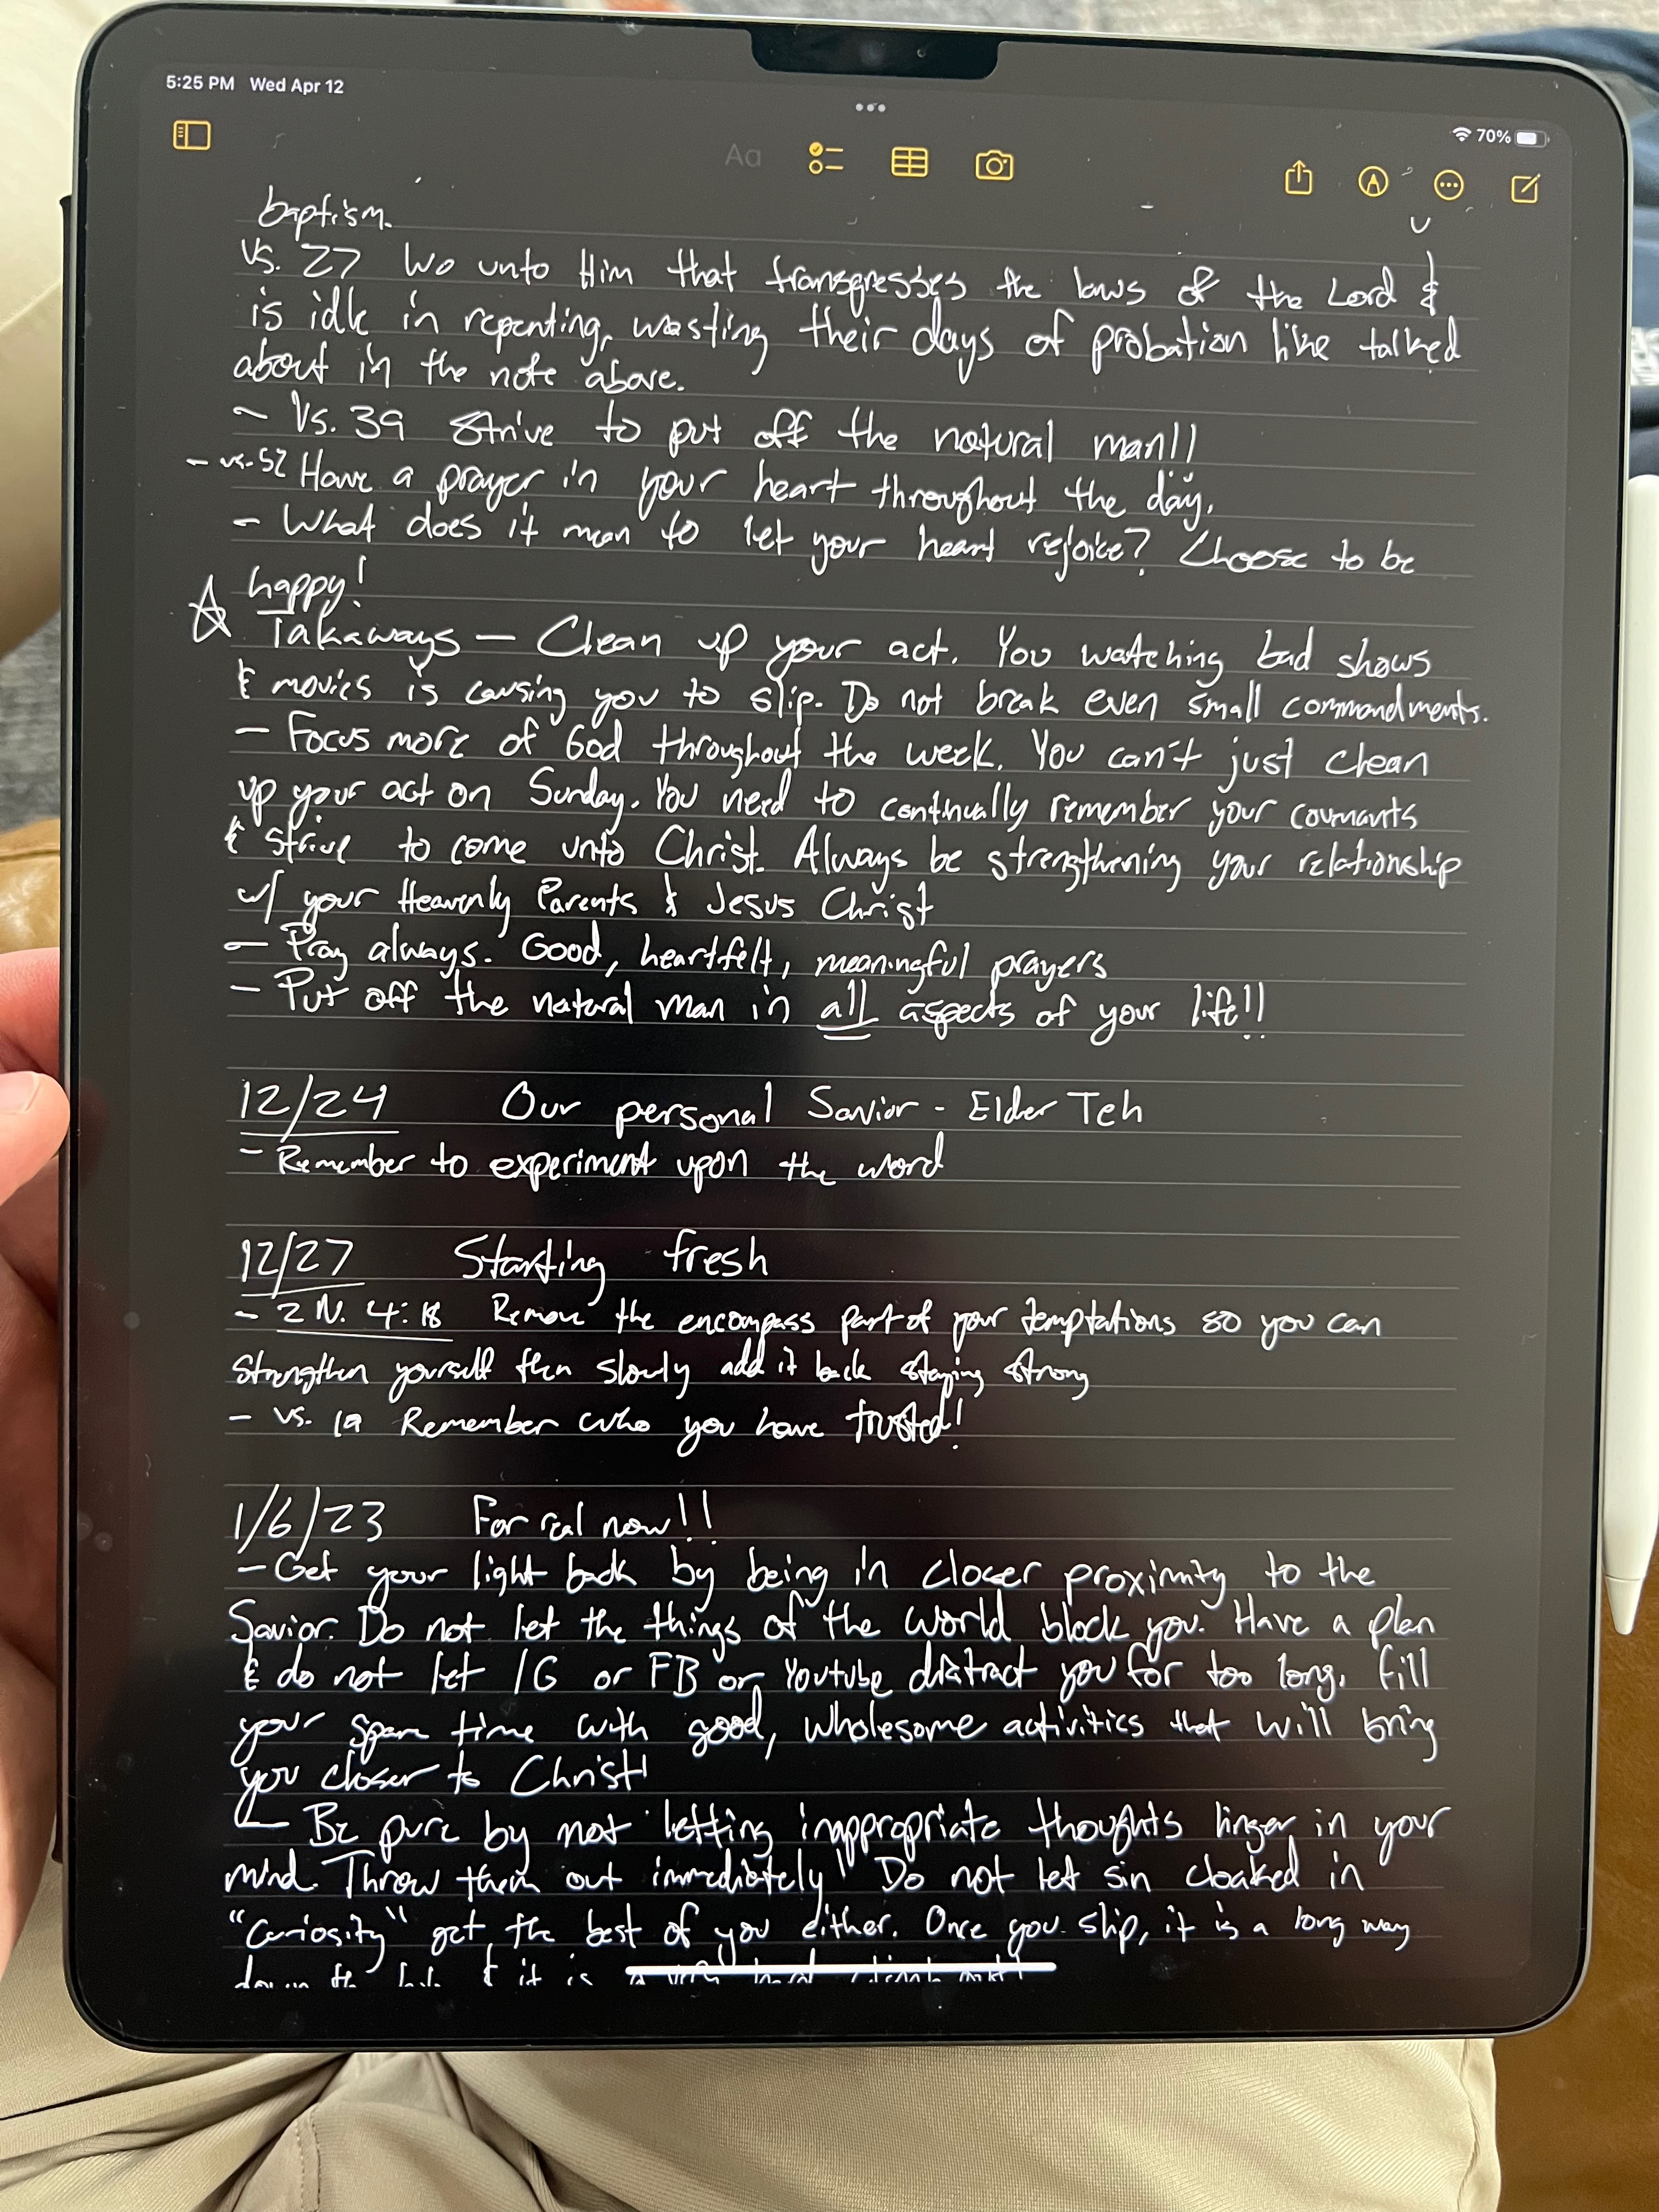 5:25 PM Wed Apr 12
70%
Aa
baptism.
vs. 27 Wo unto Him that transgresses the laws of the Lord &
is idle in repenting, wasting their days of probation like talked
about in the note above.
- Vs. 39 Strive to put off the natural man!!
- vs. 52 Have a prayer in your heart throughout the day.
- What does it mean to let your heart rejoice? Choose to be
happy!
☆ Takaways - Clean up your act. You watching bad shows
& movies is causing you to slip. Do not break even small commandments.
- Focus more of God throughout the week. You can't just clean
up your act on Sunday. You need to continually remember your covenants
& strive to come unto Christ. Always be strengthening your relationship
w/ your Heavenly Parents & Jesus Christ
- Pray always. Good, heartfelt, meaningful prayers
- Put off the natural man in all aspects of your life!!
12/24 Our personal Savior - Elder Teh
- Remember to experiment upon the word
12/27 Starting fresh
- 2 N. 4:18 Remove the encompass part of your temptations so you can
strengthen yourself then slowly add it back staying strong
- vs. 19 Remember who you have trusted!
1/6/23 For real now!!
- Get your light back by being in closer proximity to the
Savior. Do not let the things of the world block you. Have a plan
& do not let IG or FB or Youtube distract you for too long. Fill
your spare time with good, wholesome activities that will bring
you closer to Christ!
- Be pure by not letting inappropriate thoughts linger in your
mind. Throw them out immediately! Do not let sin cloaked in
"Curiosity" get the best of you either. Once you slip, it is a long way
& it is